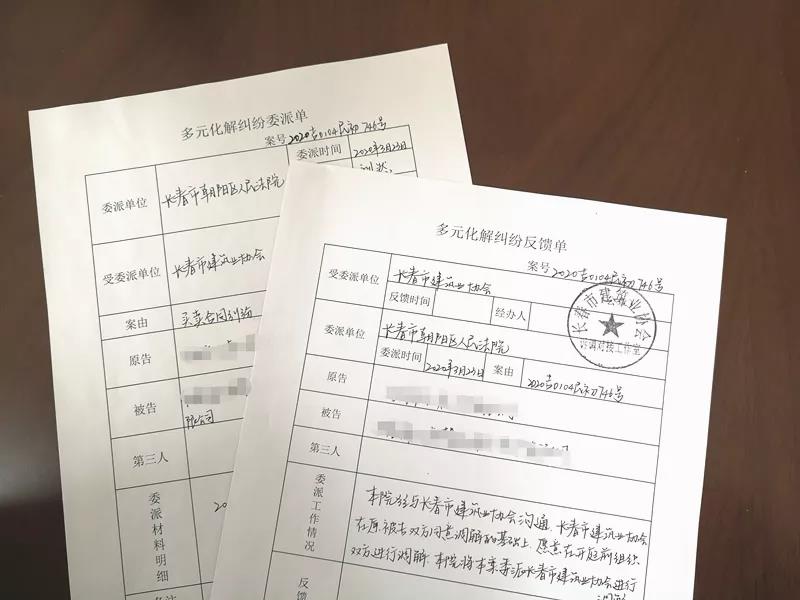 多元化解纠纷委派单
案号2020吉0104民初746号
委派单位
长春市朝阳区人民法院
委派时间
2020年3月23日
受委派单位
长春市建筑业协会
案由
买卖合同纠纷
原告
被告
限公司
第三人
委派材料明细
20
备注
多元化解纠纷反馈单
案号2020吉0104民初746号
受委派单位
长春市建筑业协会
反馈时间
经办人
委派单位
长春市朝阳区人民法院
委派时间
2020年3月23日
案由
2020吉0104民初746号
原告
被告
第三人
委派工作情况
本院经与长春市建筑业协会沟通,长春市建筑业协会
在原、被告双方同意调解的基础上,愿意在开庭前组织
双方进行调解,本院将本案委派长春市建筑业协会进行
反馈
长春市建筑业协会
诉调对接工作室